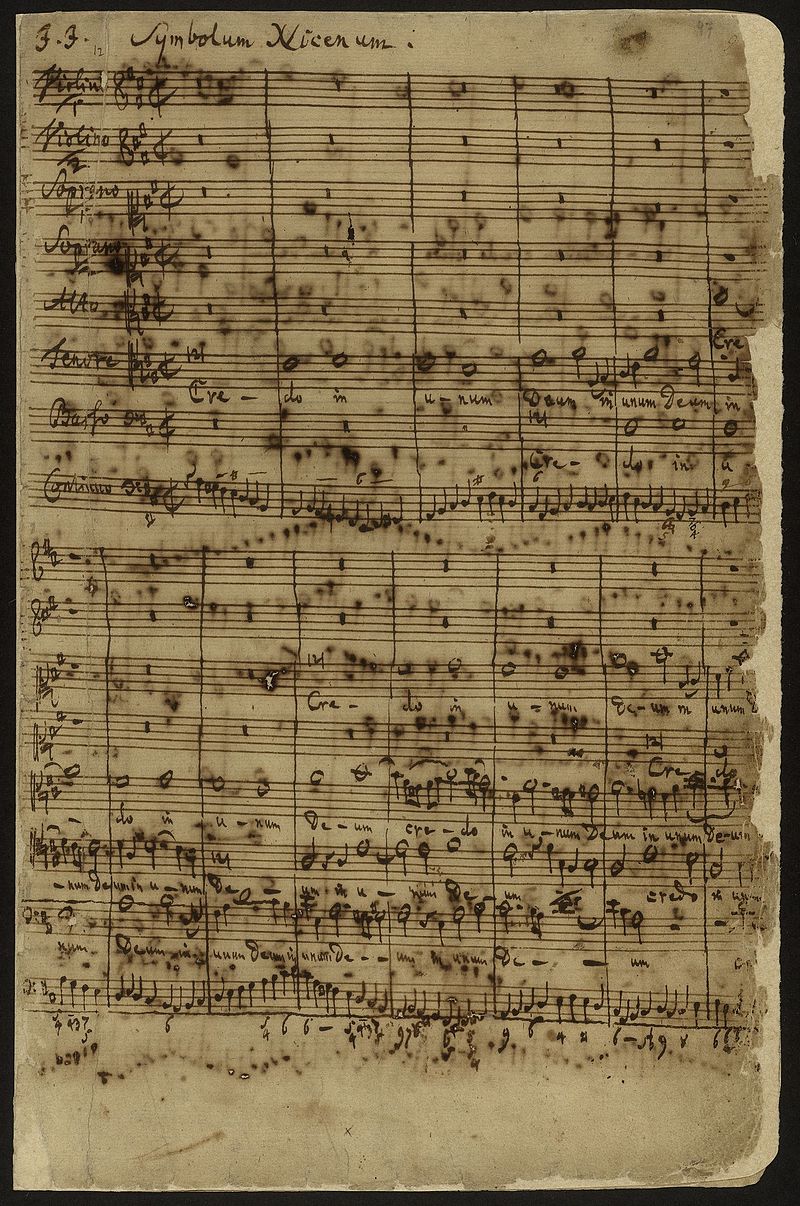 J. J. Symbolum Nicenum.
Violino 1
Violino 2
Soprano 1
Soprano 2
Alto
Cre
Tenore
Cre - do in u - num Deum in unum Deum in
Basso
Cre - do in u
Continuo
Cre - do in u - num De - um in unum
Cre do
do in u - num De - um cre - do in u - num Deum in unum De - um
- num Deum in u - num De - um in u - num De - um credo in unum
num Deum in unum Deum in unum De - - um in unum De - - um